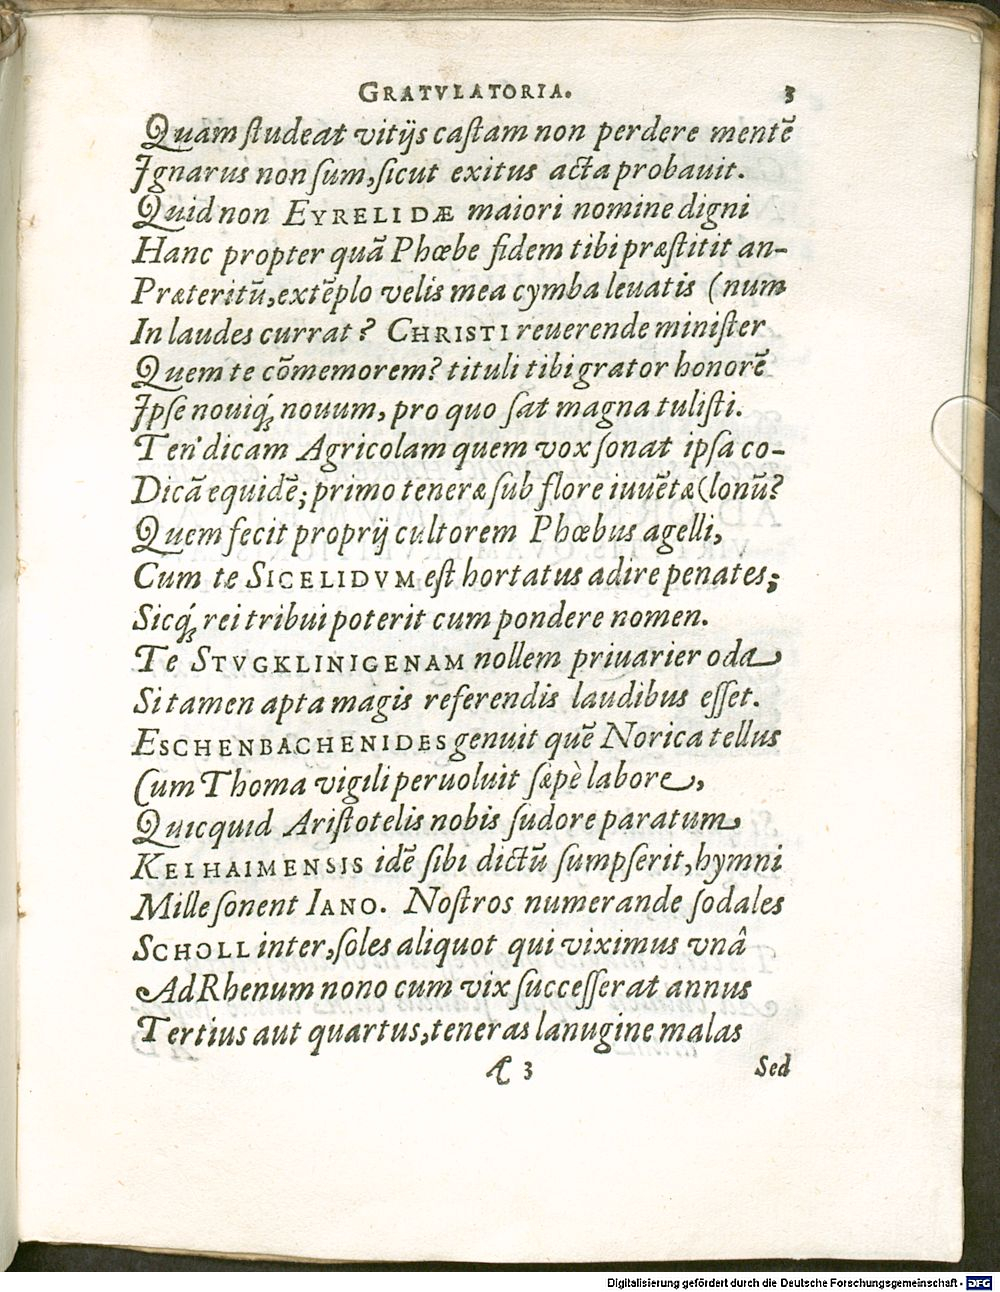 GRATVLATORIA. 3
Quam ſtudeat vitijs caſtam non perdere mentē
Ignarus non ſum, ſicut exitus acta probauit.
Quid non EYRELIDÆ maiori nomine digni
Hanc propter quā Phœbe fidem tibi præſtitit an-
Præteritū, extēplo velis mea cymba leuatis (num
In laudes currat? CHRISTI reuerende miniſter
Quem te cōmemorem? tituli tibi grator honorē
Ipſe nouiq́ȝ nouum, pro quo ſat magna tuliſti.
Ten' dicam Agricolam quem vox ſonat ipſa co-
Dicā equidē; primo teneræ ſub flore iuuētæ (lonū?
Quem fecit proprij cultorem Phœbus agelli,
Cum te SICELIDVM eſt hortatus adire penates;
Sicq́ȝ rei tribui poterit cum pondere nomen.
Te STVGKLINIGENAM nollem priuarier oda
Si tamen apta magis referendis laudibus eſſet.
ESCHENBACHENIDES genuit quē Norica tellus
Cum Thoma vigili peruoluit ſæpè labore,
Quicquid Ariſtotelis nobis ſudore paratum
KELHAIMENSIS idē ſibi dictū ſumpſerit, hymni
Mille ſonent IANO. Noſtros numerande ſodales
SCHOLL inter, ſoles aliquot qui viximus vnâ
Ad Rhenum nono cum vix ſucceſſerat annus
Tertius aut quartus, teneras lanugine malas
A 3 Sed
Digitalisierung gefördert durch die Deutsche Forschungsgemeinschaft - DFG